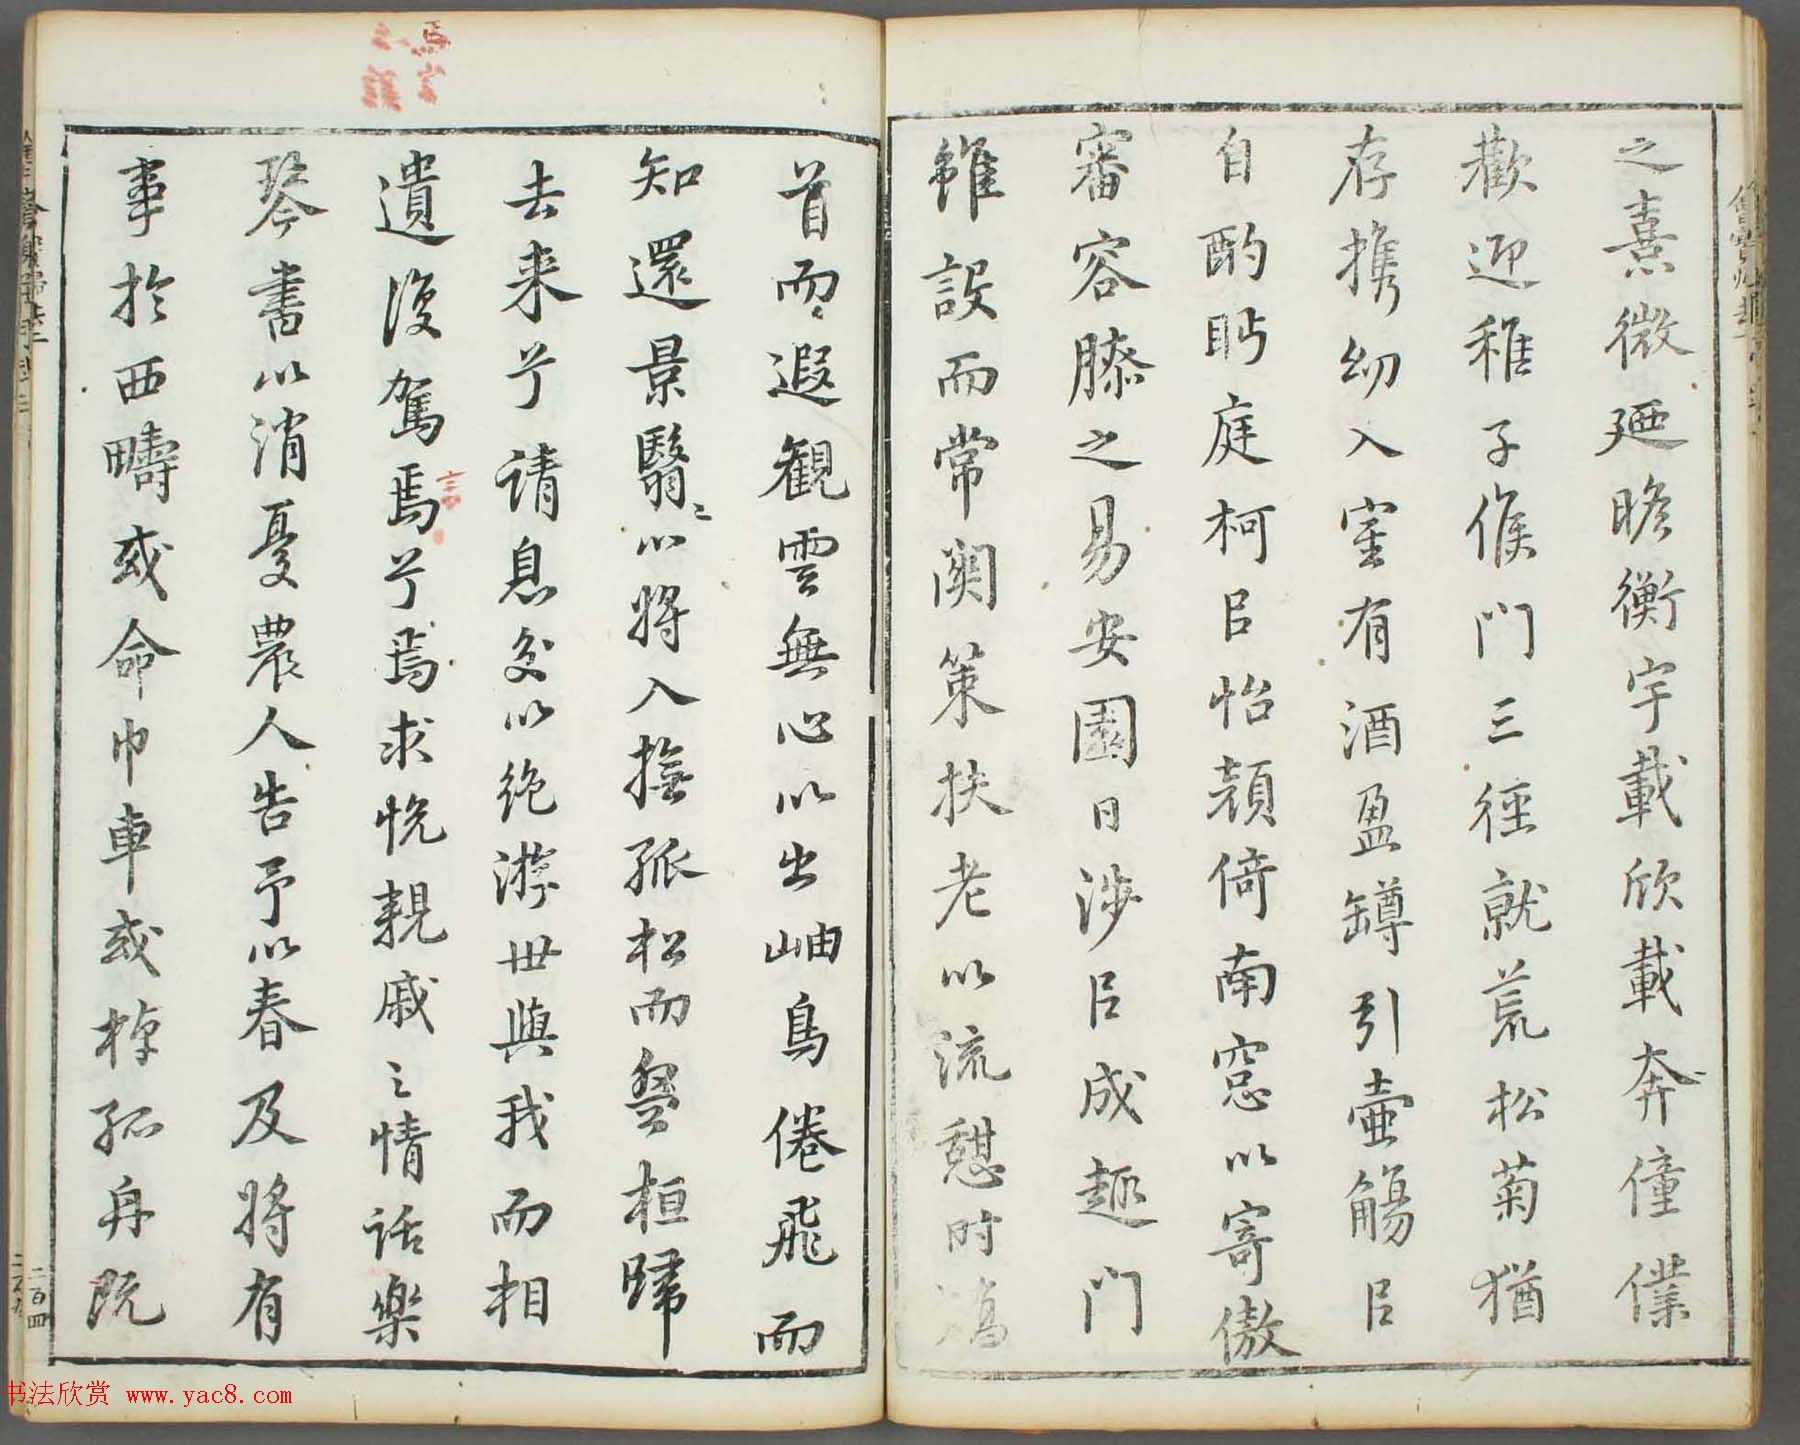 之熹微廼瞻衡宇載欣載奔僮僕
歡迎稚子候門三徑就荒松菊猶
存攜幼入室有酒盈罇引壺觴㠯
自酌眄庭柯㠯怡顏倚南窓以寄傲
審容膝之易安園日涉㠯成趣門
雖設而常關策扶老以流憩時
首而遐觀雲無心以出岫鳥倦飛而
知還景翳〻以將入撫孤松而盤桓歸
去来兮請息交以絕游世與我而相
遺復駕焉兮焉求悅親戚之情話樂
琴書以消憂農人告予以春及將有
事於西疇或命巾車或棹孤舟既
二百四
书法欣赏 www.yac8.com